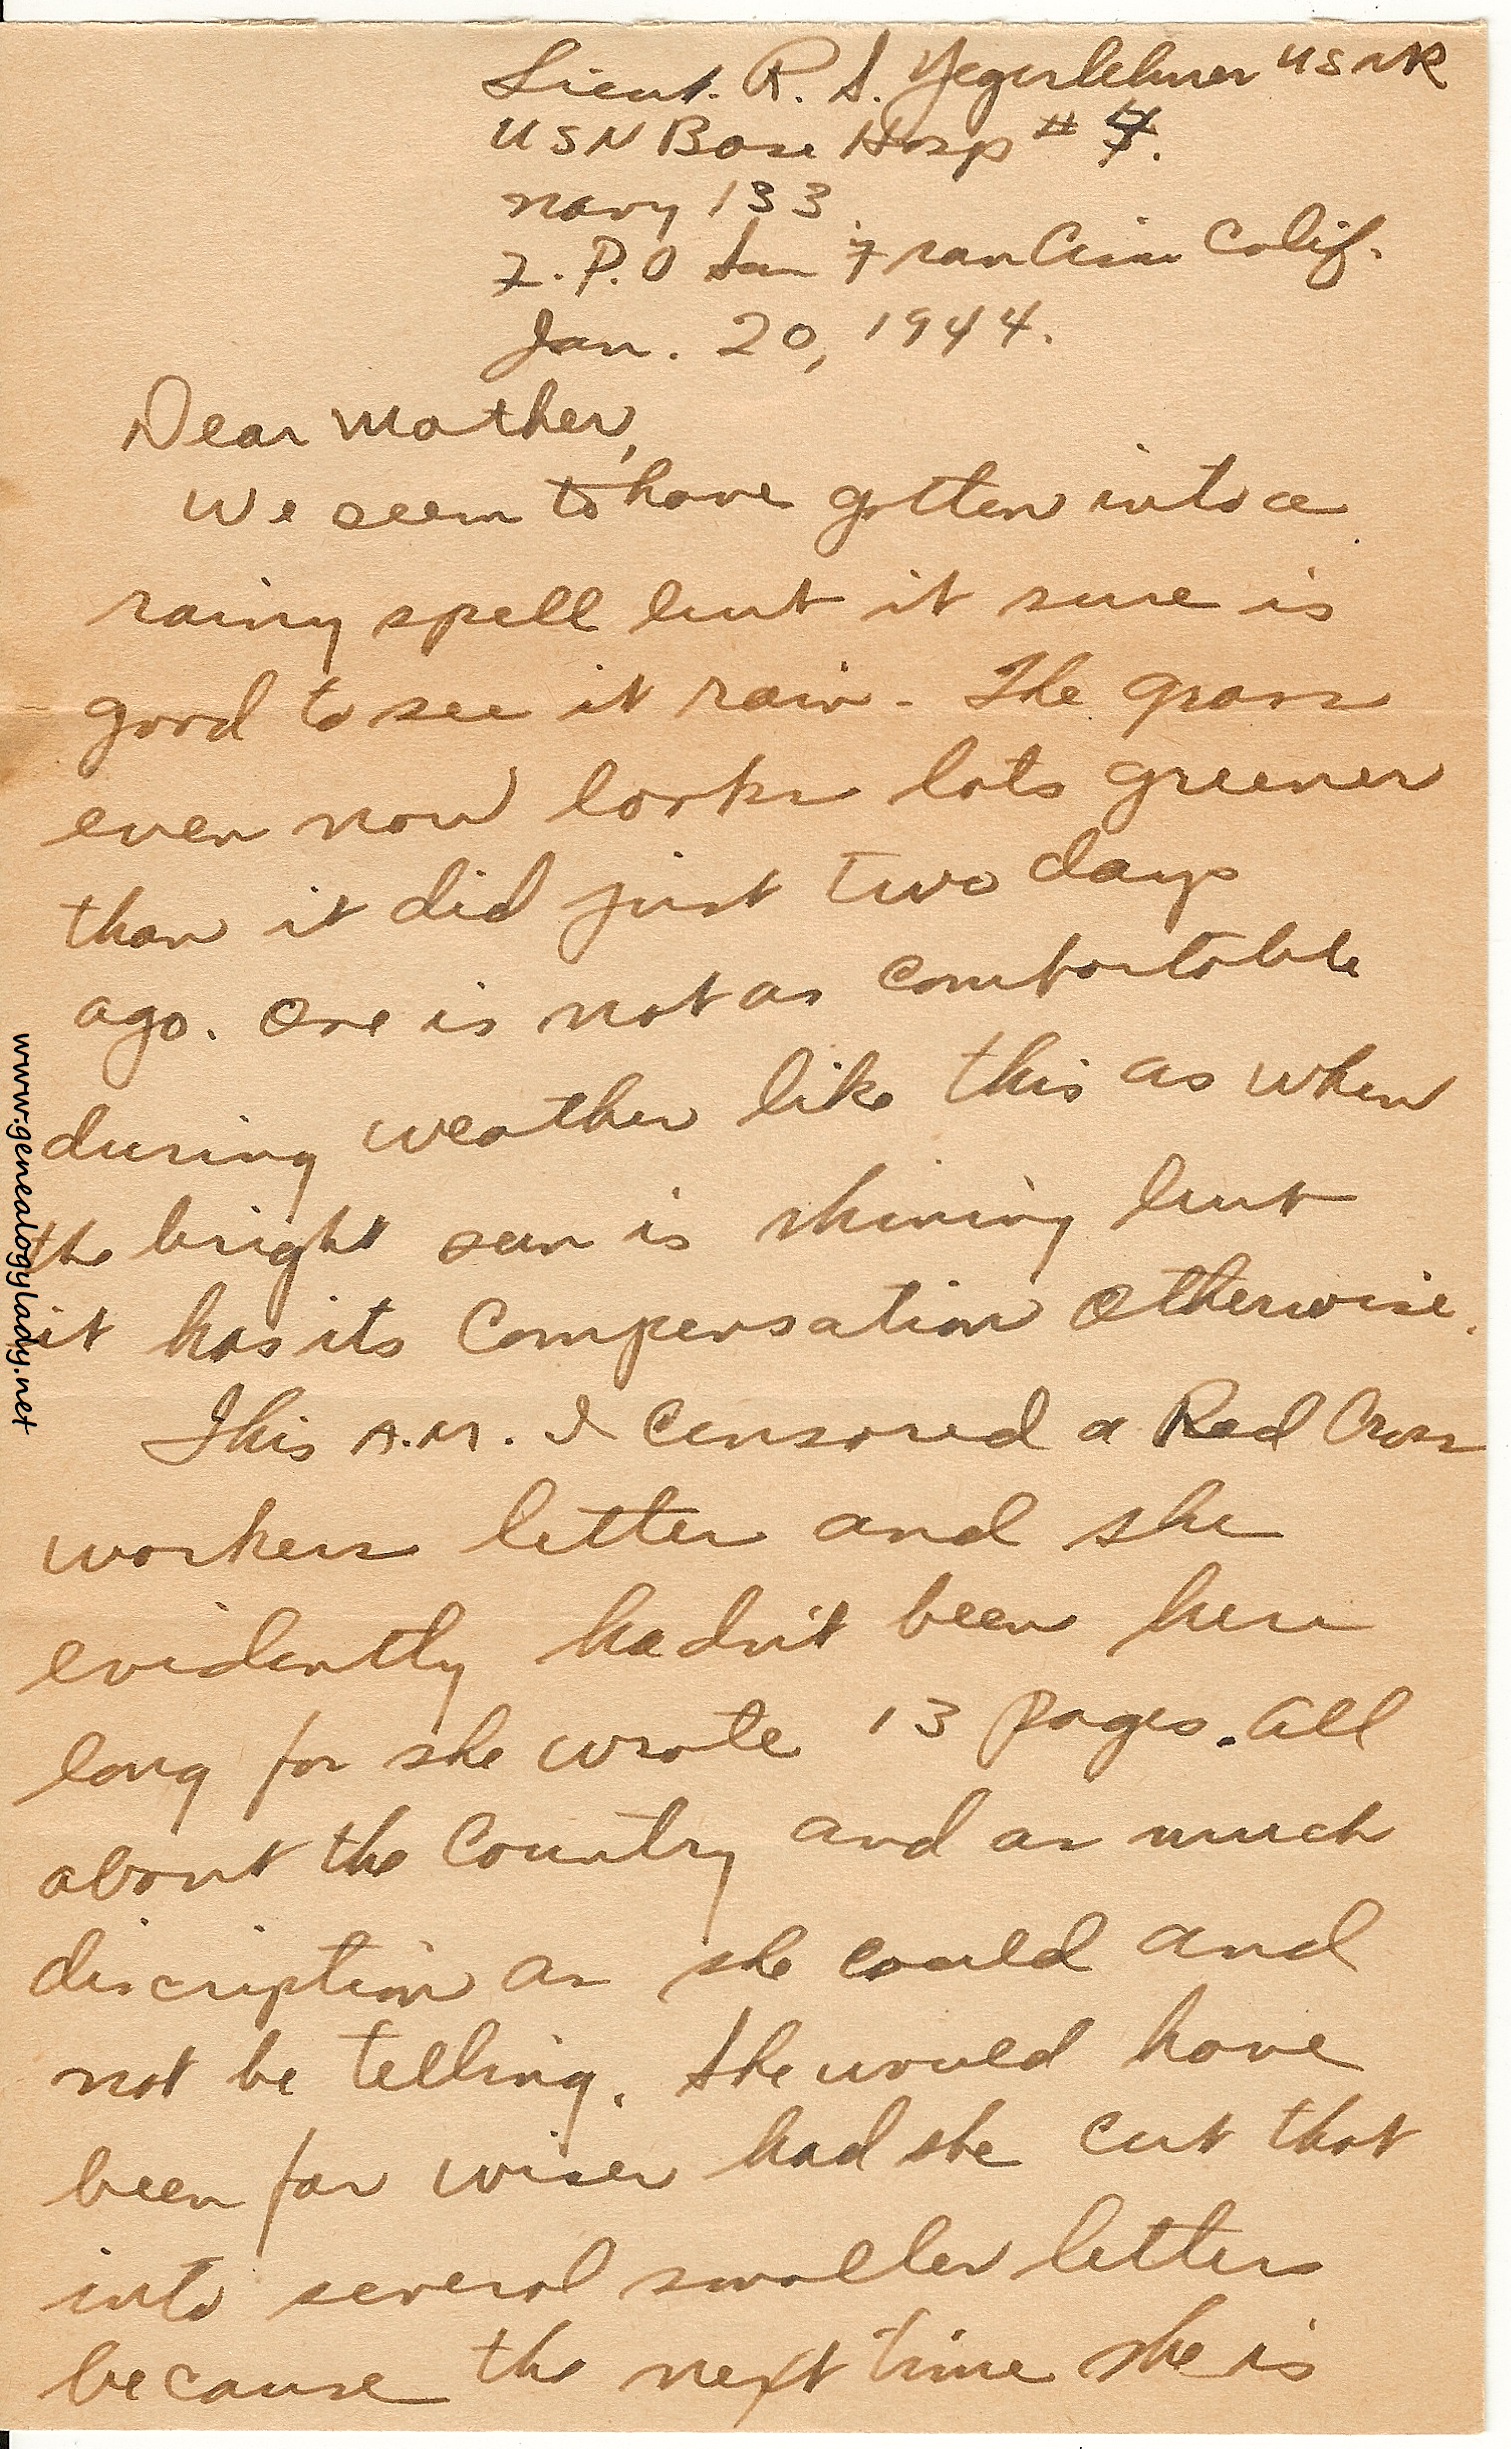 Lieut. R. S. Yegerlehner USNR
USN Base Hosp #
Navy 133
F.P.O San Francisco Calif.
Jan. 20, 1944.
Dear Mother,
We seem to have gotten into a
rainy spell but it sure is
good to see it rain. The grass
even now looks lots greener
than it did just two days
ago. One is not as comfortable
during weather like this as when
the bright sun is shining but
it has its compensation otherwise.
This A.M. I censored a Red Cross
workers letter and she
evidently hadn't been here
long for she wrote 13 pages. All
about the country and as much
discription as she could and
not be telling. She would have
been far wiser had she cut that
into several smaller letters
because the next time she is
www.genealogylady.net